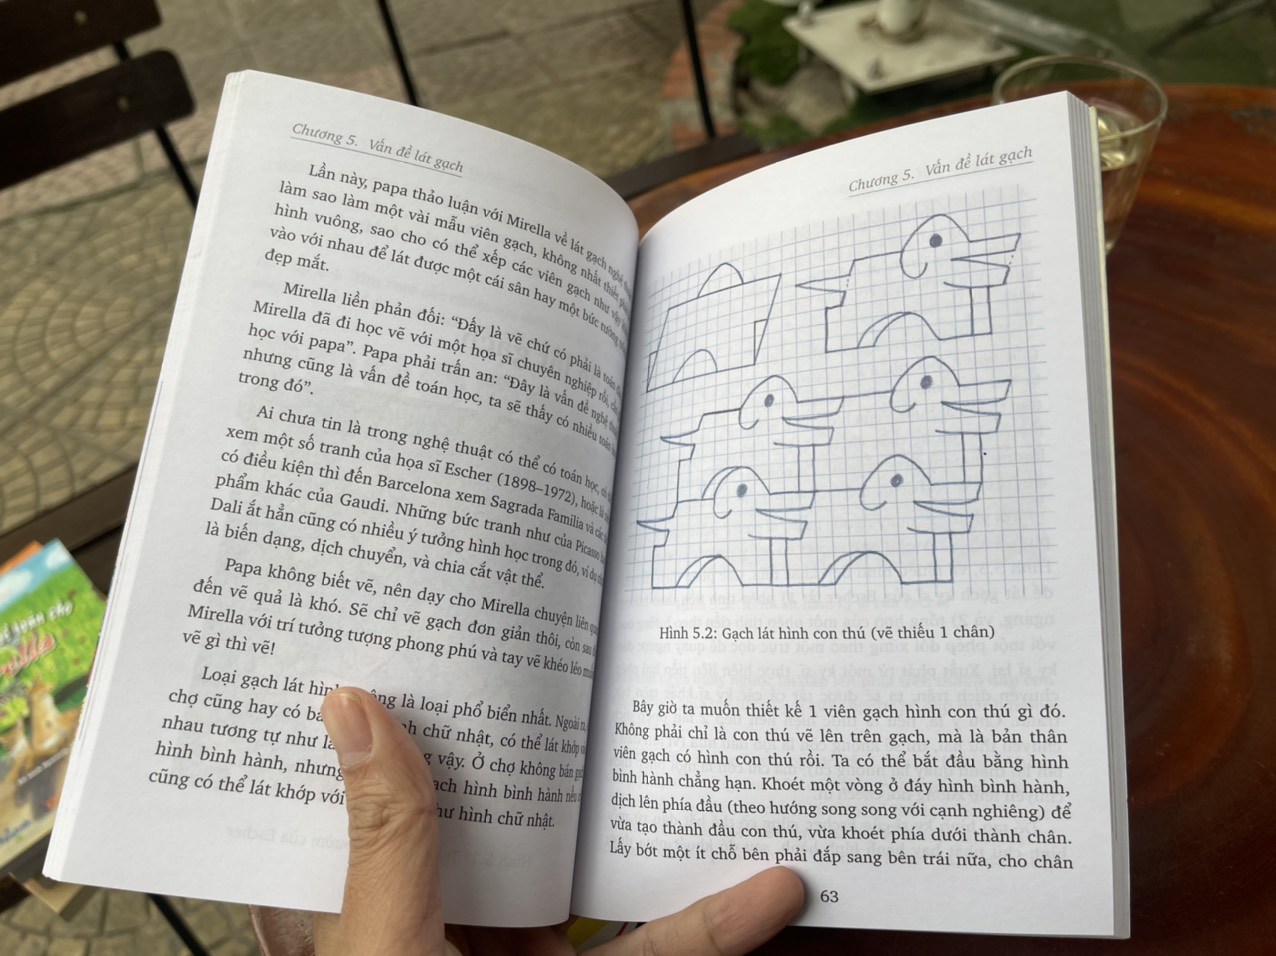 Chương 5. Vấn đề lát gạch
Lần này, papa thảo luận với Mirella về lát gạch nghệ
làm sao làm một vài mẫu viên gạch, không nhất thiết
hình vuông, sao cho có thể xếp các viên gạch như vậy
vào với nhau để lát được một cái sân hay một bức tường
đẹp mắt.
Mirella liền phản đối: “Đấy là vẽ chứ có phải là toán
Mirella đã đi học vẽ với một họa sĩ chuyên nghiệp rồi,
học với papa”. Papa phải trấn an: “Đây là vấn đề nghệ
nhưng cũng là vấn đề toán học, ta sẽ thấy có nhiều toán
trong đó”.
Ai chưa tin là trong nghệ thuật có thể có toán học,
xem một số tranh của họa sĩ Escher (1898–1972), hoặc là
có điều kiện thì đến Barcelona xem Sagrada Familia và các
phẩm khác của Gaudi. Những bức tranh như của Picasso
Dali ắt hẳn cũng có nhiều ý tưởng hình học trong đó, ví dụ
là biến dạng, dịch chuyển, và chia cắt vật thể.
Papa không biết vẽ, nên dạy cho Mirella chuyện liên
đến vẽ quả là khó. Sẽ chỉ vẽ gạch đơn giản thôi, còn sau
Mirella với trí tưởng tượng phong phú và tay vẽ khéo léo
vẽ gì thì vẽ!
Loại gạch lát là loại phổ biến nhất. Ngoài ra,
chợ cũng hay có chữ nhật, có thể lát khớp
nhau tương tự như vậy. Ở chợ không bán
hình bình hành, nhưng hình bình hành nếu
cũng có thể lát khớp với hình chữ nhật.
Chương 5. Vấn đề lát gạch
Hình 5.2: Gạch lát hình con thú (vẽ thiếu 1 chân)
Bây giờ ta muốn thiết kế 1 viên gạch hình con thú gì đó.
Không phải chỉ là con thú vẽ lên trên gạch, mà là bản thân
viên gạch có hình con thú rồi. Ta có thể bắt đầu bằng hình
bình hành chẳng hạn. Khoét một vòng ở đáy hình bình hành,
dịch lên phía đầu (theo hướng song song với cạnh nghiêng) để
vừa tạo thành đầu con thú, vừa khoét phía dưới thành chân.
Lấy bớt một ít chỗ bên phải đắp sang bên trái nữa, cho chân
63